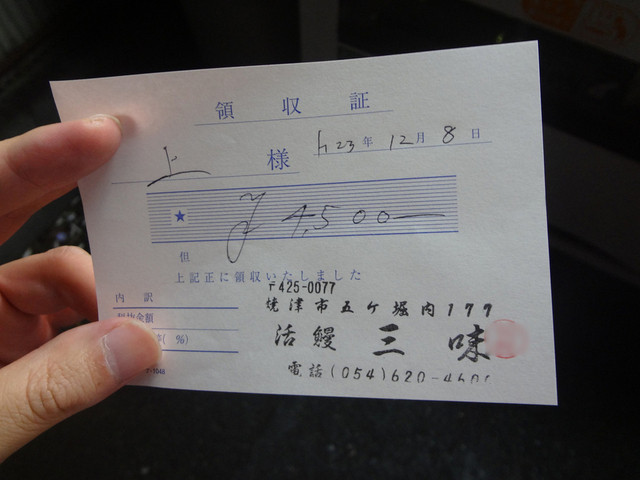 領収証
上様 h23年12月8日
★ ¥4,500―
但
上記正に領収いたしました
〒425-0077
内訳
焼津市五ケ堀内177
税抜金額
活鰻 三味
(%)
電話(054)620-4601